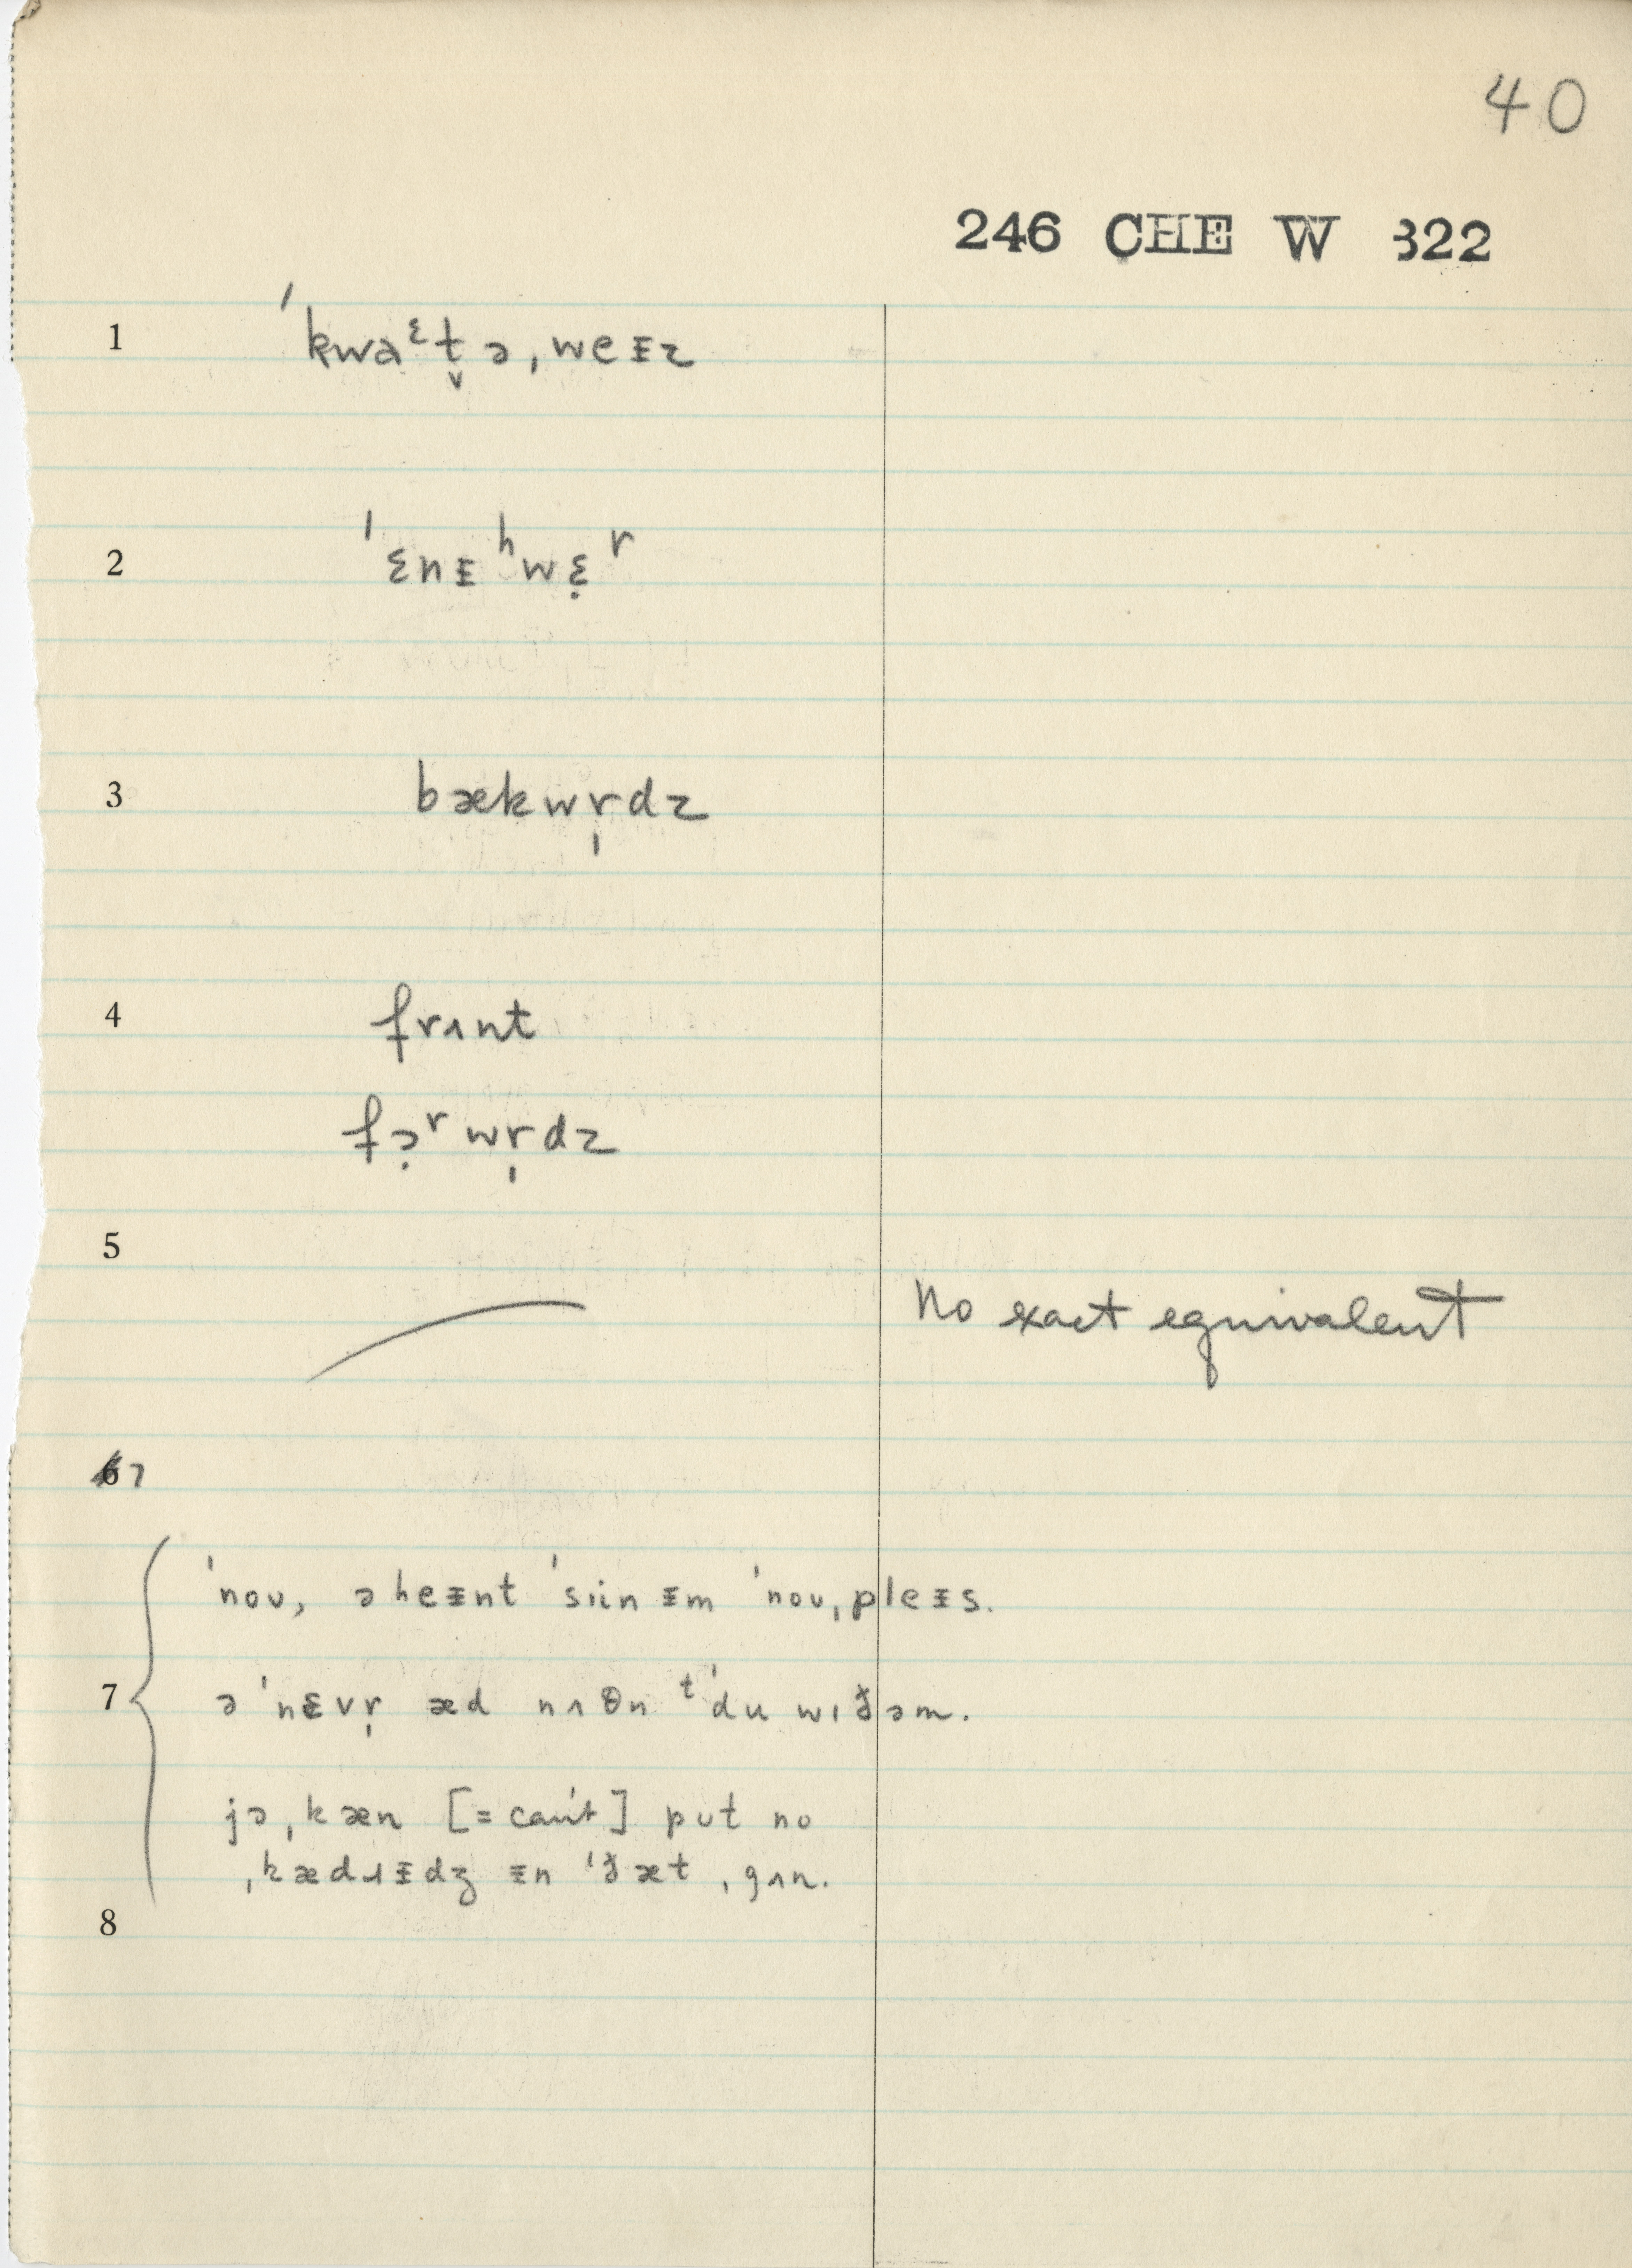 40
246 CHE W 322
1 ˈkwaᵋt̬ə ˌweᵻz
2 ˈɛnᵻʰwɛ̣ʳ
3 bækwr̩dz
4 frʌnt
fɔ̣ʳwr̩dz
5 No exact equivalent
67
ˈnoʊ, ə heᵻnt ˈsiin ᵻm ˈnoʊ ˌpleᵻs.
7 ə ˈnɛvr̩ æd nʌθn ᵗˈdu wɪðəm.
jə ˌkæn [= can't] pʊt no
ˌkædɹᵻdʒ ᵻn ˈðæt ˌgʌn.
8